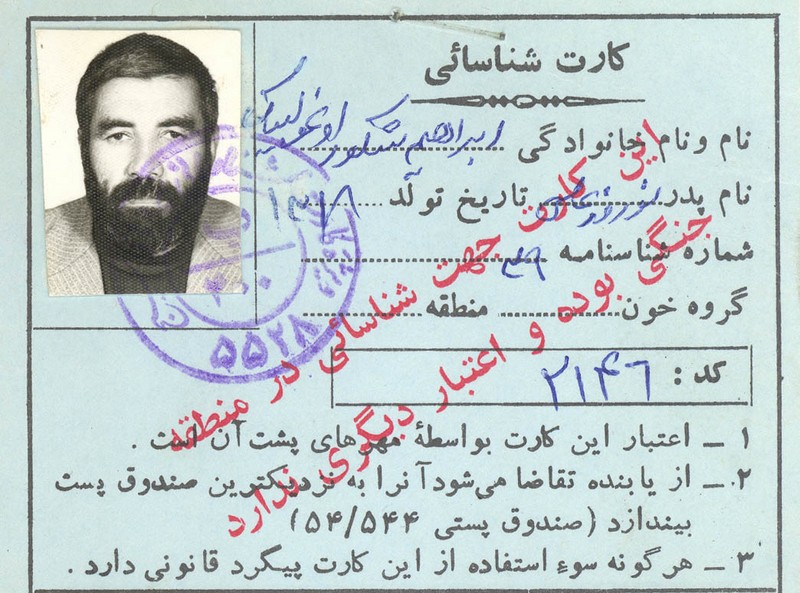 کارت شناسائی
نام ونام خانوادگی ابراهیم شکوراوغولیبیگی
نام پدر تاریخ تولد ۱۳۱۸
شماره شناسنامه ۳۹
گروه خون منطقه
کد: ۲۱۴۶
۱ ـ اعتبار این کارت بواسطهٔ مهرهای پشت آن است .
۲ ـ از یابنده تقاضا می‌شود آنرا به نزدیکترین صندوق پست
بیندازد (صندوق پستی ۵۴/۵۴۴)
۳ ـ هرگونه سوءِ استفاده از این کارت پیگرد قانونی دارد .
این کارت جهت شناسائی در منطقه
جنگی بوده و اعتبار دیگری ندارد
۳۰۰
۵۵۲۸